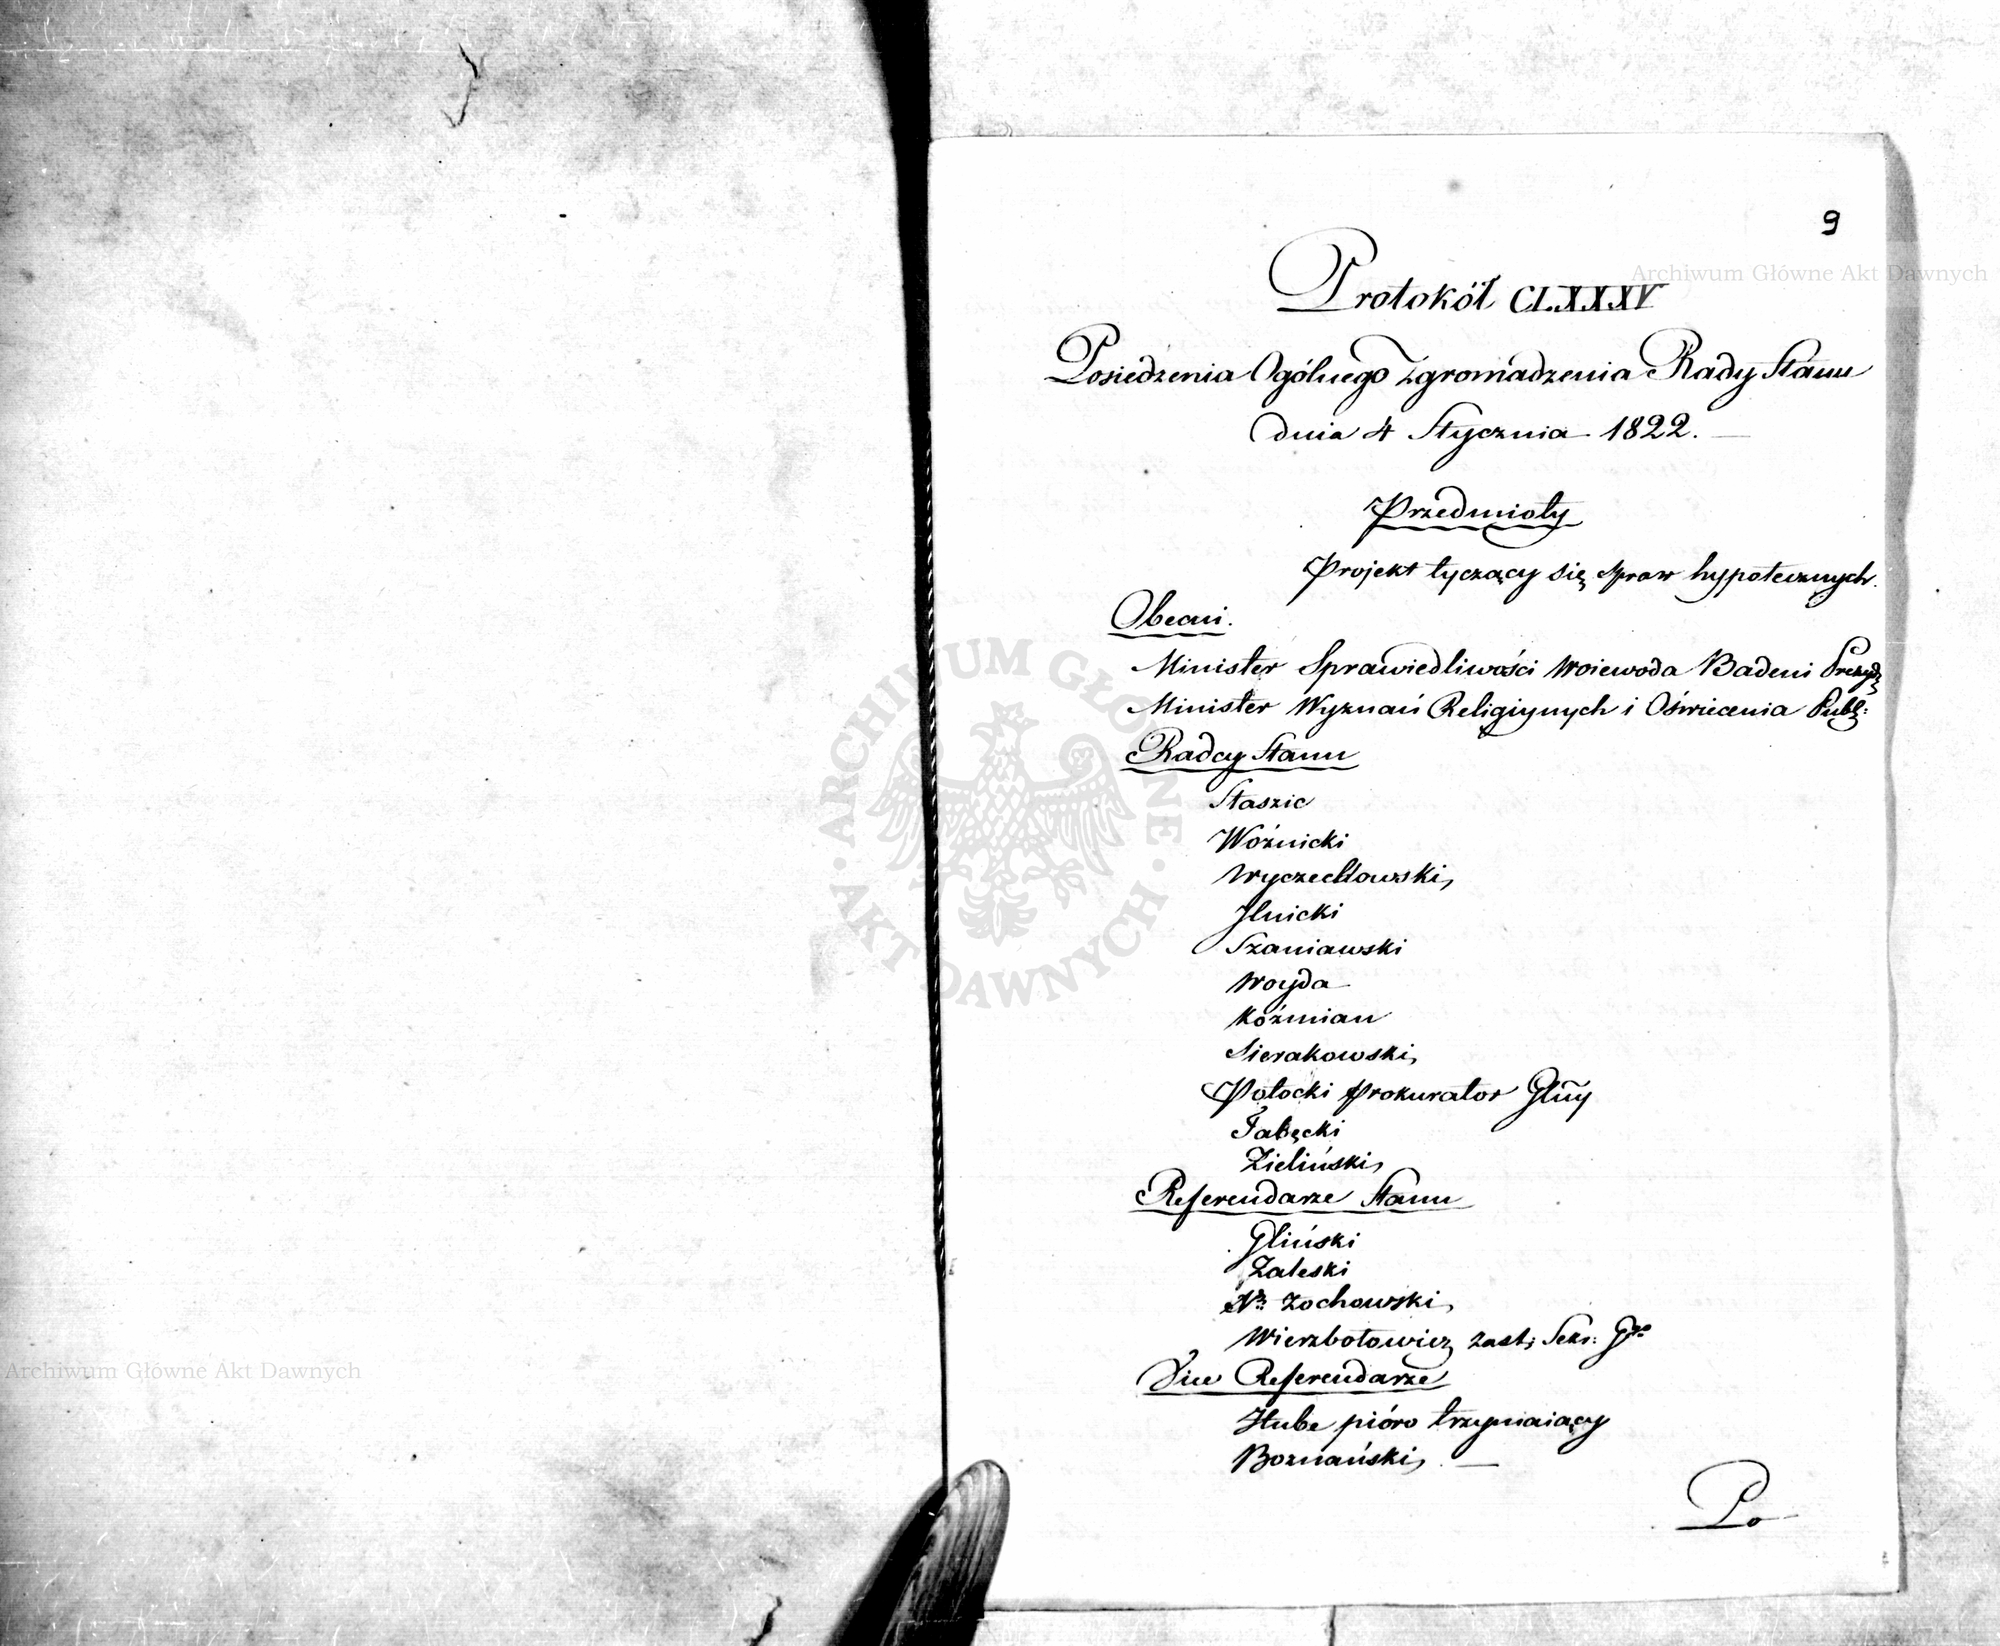 9
Protokół CLXXXV
Posiedzenia Ogólnego Zgromadzenia Rady Stanu
dnia 4 Stycznia 1822.
Przedmioty
Projekt tyczący się spraw hypotecznych.
Obecni.
Minister Sprawiedliwości Woiewoda Badeni Prezyd:
Minister Wyznań Religiynych i Oświecenia Publ:
Radcy Stanu
Staszic
Woźnicki
Wyczechowski,
Ilnicki
Szaniawski
Woyda
Koźmian
Sierakowski,
Potocki Prokurator Glny
Łabęcki
Zieliński,
Referendarze Stanu
Gliński
Zaleski
Żochowski,
Wierzbołowicz zast: Sekr: Ggo
Vice Referendarze
Hube pióro trzymaiący
Boznański, —
Po
Archiwum Główne Akt Dawnych
ARCHIWUM GŁÓWNE · AKT DAWNYCH ·
Archiwum Główne Akt Dawnych